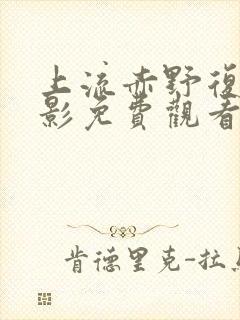 上流赤野復
影免費觀看
肯德里克-拉馬